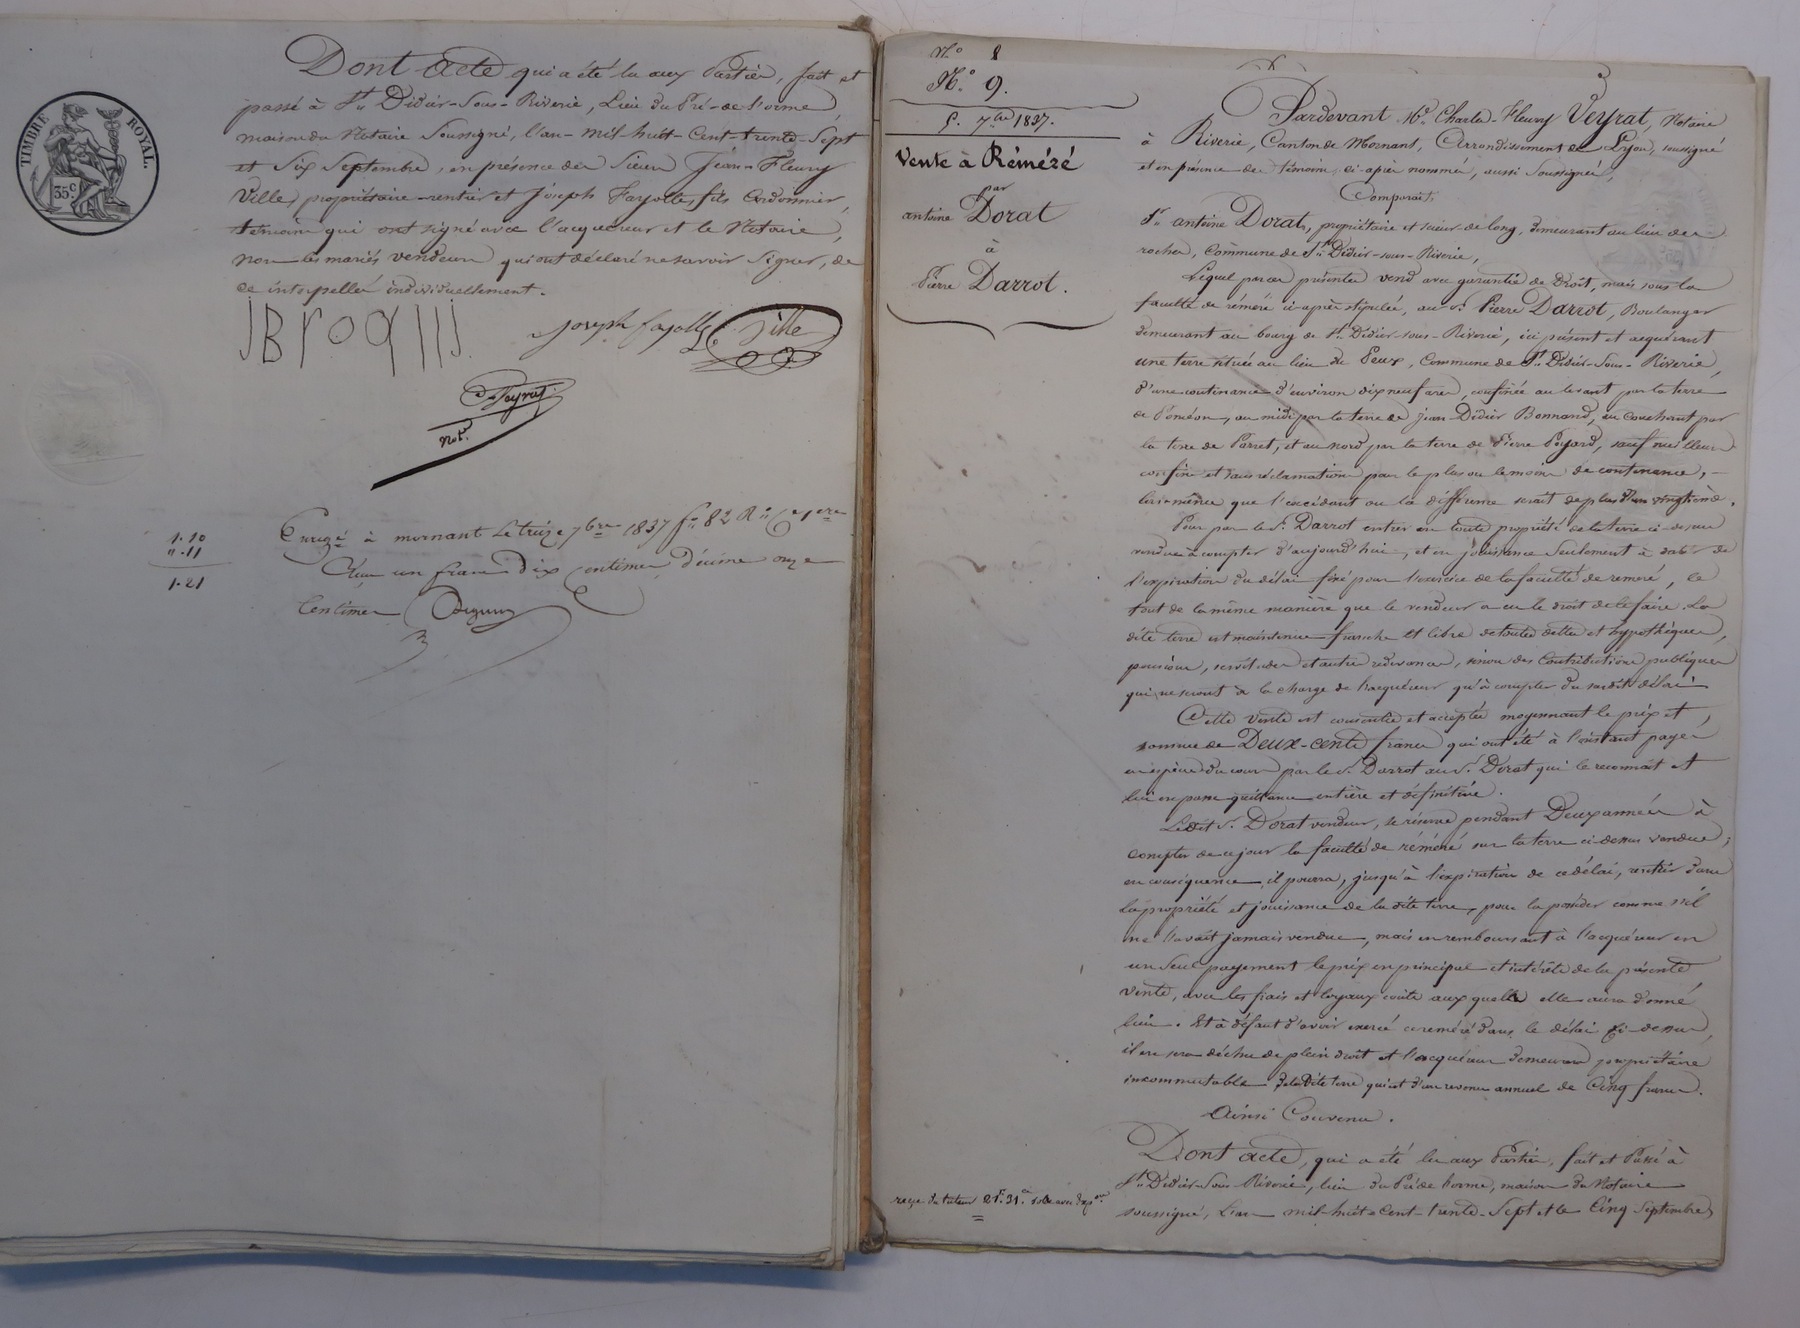 TIMBRE ROYAL.
35c
Dont acte qui a été lu aux Parties, fait et
passé à St. Didier-sous-Riverie, Lieu du Pré-de-l'orme,
maison du Notaire Soussigné, l'an-mil-huit-Cent-trente-Sept
et Six Septembre, en présence des Sieurs Jean-Fleury
Ville, propriétaire-rentier et Joseph Fayolle, fils Cordonnier,
témoins qui ont signé avec l'acquéreur et le Notaire,
non les mariés vendeurs qui ont déclaré ne savoir Signer, de
ce interpellés individuellement.
joseph fayolle Ville
Veyrat
Not.
1.10
".11
1.21
Enregé à mornant Le treize 7bre 1837 fo 82 Ro
Reçu un franc dix Centimes, décime onze
Centimes
No 8
No 9.
5. 7bre 1837.
Vente à Réméré
par
antoine Dorat
à
Pierre Darrot.
Pardevant Me. Charles-Fleury Veyrat, Notaire
à Riverie, Canton de Mornant, Arrondissement de Lyon, soussigné
et en présence des témoins ci-après nommés, aussi Soussignés,
Comparait,
Sr. antoine Dorat, propriétaire et scieur-de-long, demeurant au lieu des
roches, Commune de St. Didier-sous-Riverie,
Lequel par ces présentes vend avec garantie de Droit, mais sous la
faculté de réméré ci-après stipulée, au Sr. Pierre Darrot, Boulanger
demeurant au bourg de St. Didier-sous-Riverie, ici présent et acquérant
une terre située au lieu du Peux, Commune de St. Didier-Sous-Riverie,
d'une contenance d'environ dix neuf ares, confinée au levant par la terre
de Poméon, au midi par la terre de Jean-Didier Bonnand, au Couchant par
la terre de Parret, et au nord par la terre de Pierre Poyard, sauf meilleurs
confins et sans réclamation pour le plus ou le moins de contenance,
lors-même que l'excédant ou la différence serait de plus d'un vingtième.
Pour par le Sr. Darrot entrer en toute propriété de la terre ci-dessus
vendue à compter d'aujourd'hui, et en jouissance Seulement à dater de
l'expiration du délai fixé pour l'exercice de la faculté de réméré, le
tout de la même manière que le vendeur a eu le droit de le faire. La
dite terre est maintenue franche et libre de toutes dettes et hypothèques,
pensions, servitudes et autres redevances, sinon des Contributions publiques
qui ne seront à la charge de l'acquéreur qu'à compter du susdit délai.
Cette vente est consentie et acceptée moyennant le prix et
somme de Deux-cents francs qui ont été à l'instant payés
en espèces du cours par le Sr. Darrot au Sr. Dorat qui le reconnait et
lui en passe quittance entière et définitive.
Ledit Sr. Dorat vendeur, se réserve pendant Deux années à
compter de ce jour la faculté de réméré sur la terre ci-dessus vendue;
en conséquence il pourra, jusqu'à l'expiration de ce délai, rentrer dans
la propriété et jouissance de la dite terre, pour la posséder comme s'il
ne l'avait jamais vendue, mais en remboursant à l'acquéreur en
un Seul payement le prix en principal et intérêts de la présente
vente, avec les frais et loyaux coûts auxquels elle aura donné
lieu. Et à défaut d'avoir exercé ce réméré dans le délai ci-dessus,
il en sera déchu de plein droit et l'acquéreur demeurera propriétaire
incommutable de la dite terre qui est d'un revenu annuel de Cinq francs.
Ainsi Convenu.
Dont acte, qui a été lu aux Parties, fait et Passé à
St. Didier-Sous-Riverie, lieu du Pré de l'orme, maison du Notaire
soussigné, L'an mil-huit-Cent-trente-Sept et le Cinq Septembre